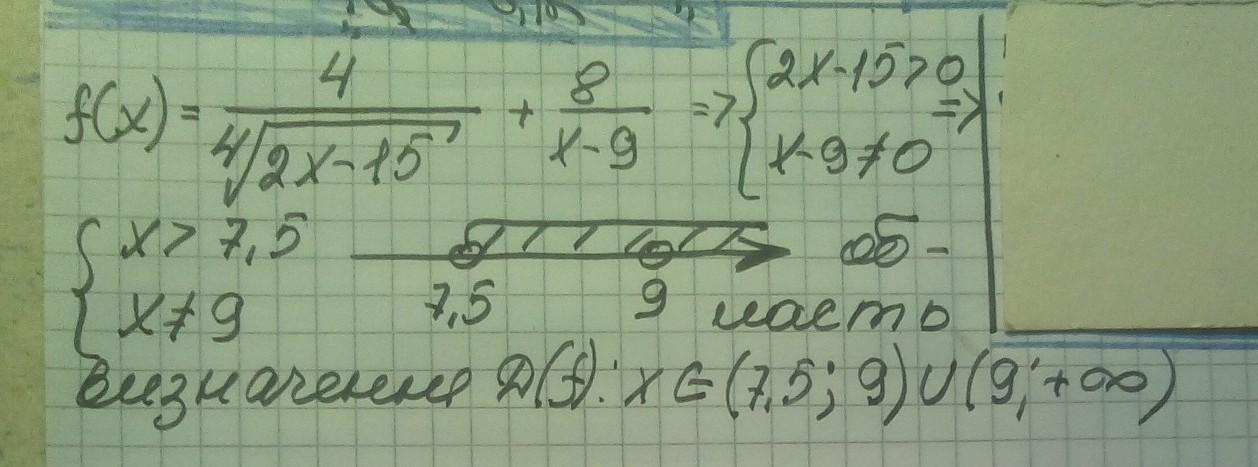 f(x) = 4/∜(2x-15) + 8/(x-9) => { 2x-15>0 x-9≠0 =>
{ x > 7,5 x ≠ 9 7,5 9 об-
ласть
визначення D(f): x ∈ (7,5; 9) ∪ (9; +∞)